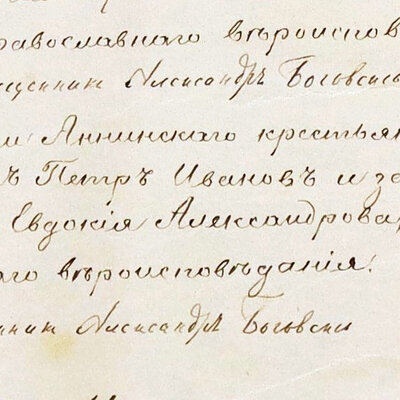 равославнаго вѣроиспов
щенник Александръ Боговски
Аннинскаго крестьян
ъ Петръ Ивановъ и за
Евдокія Александрова,
аго вѣроисповѣданія.
нник Александръ Боговски